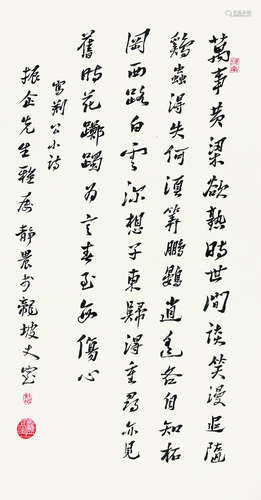 萬事黃粱欲熟時世間談笑漫追隨
鷄蟲得失何須算鵬鷃逍遙各自知柘
岡西路白雲深想子東歸得重尋亦見
舊時花躑躅為言春至每傷心
寫荊公小詩
振企先生雅屬靜農於龍坡丈室